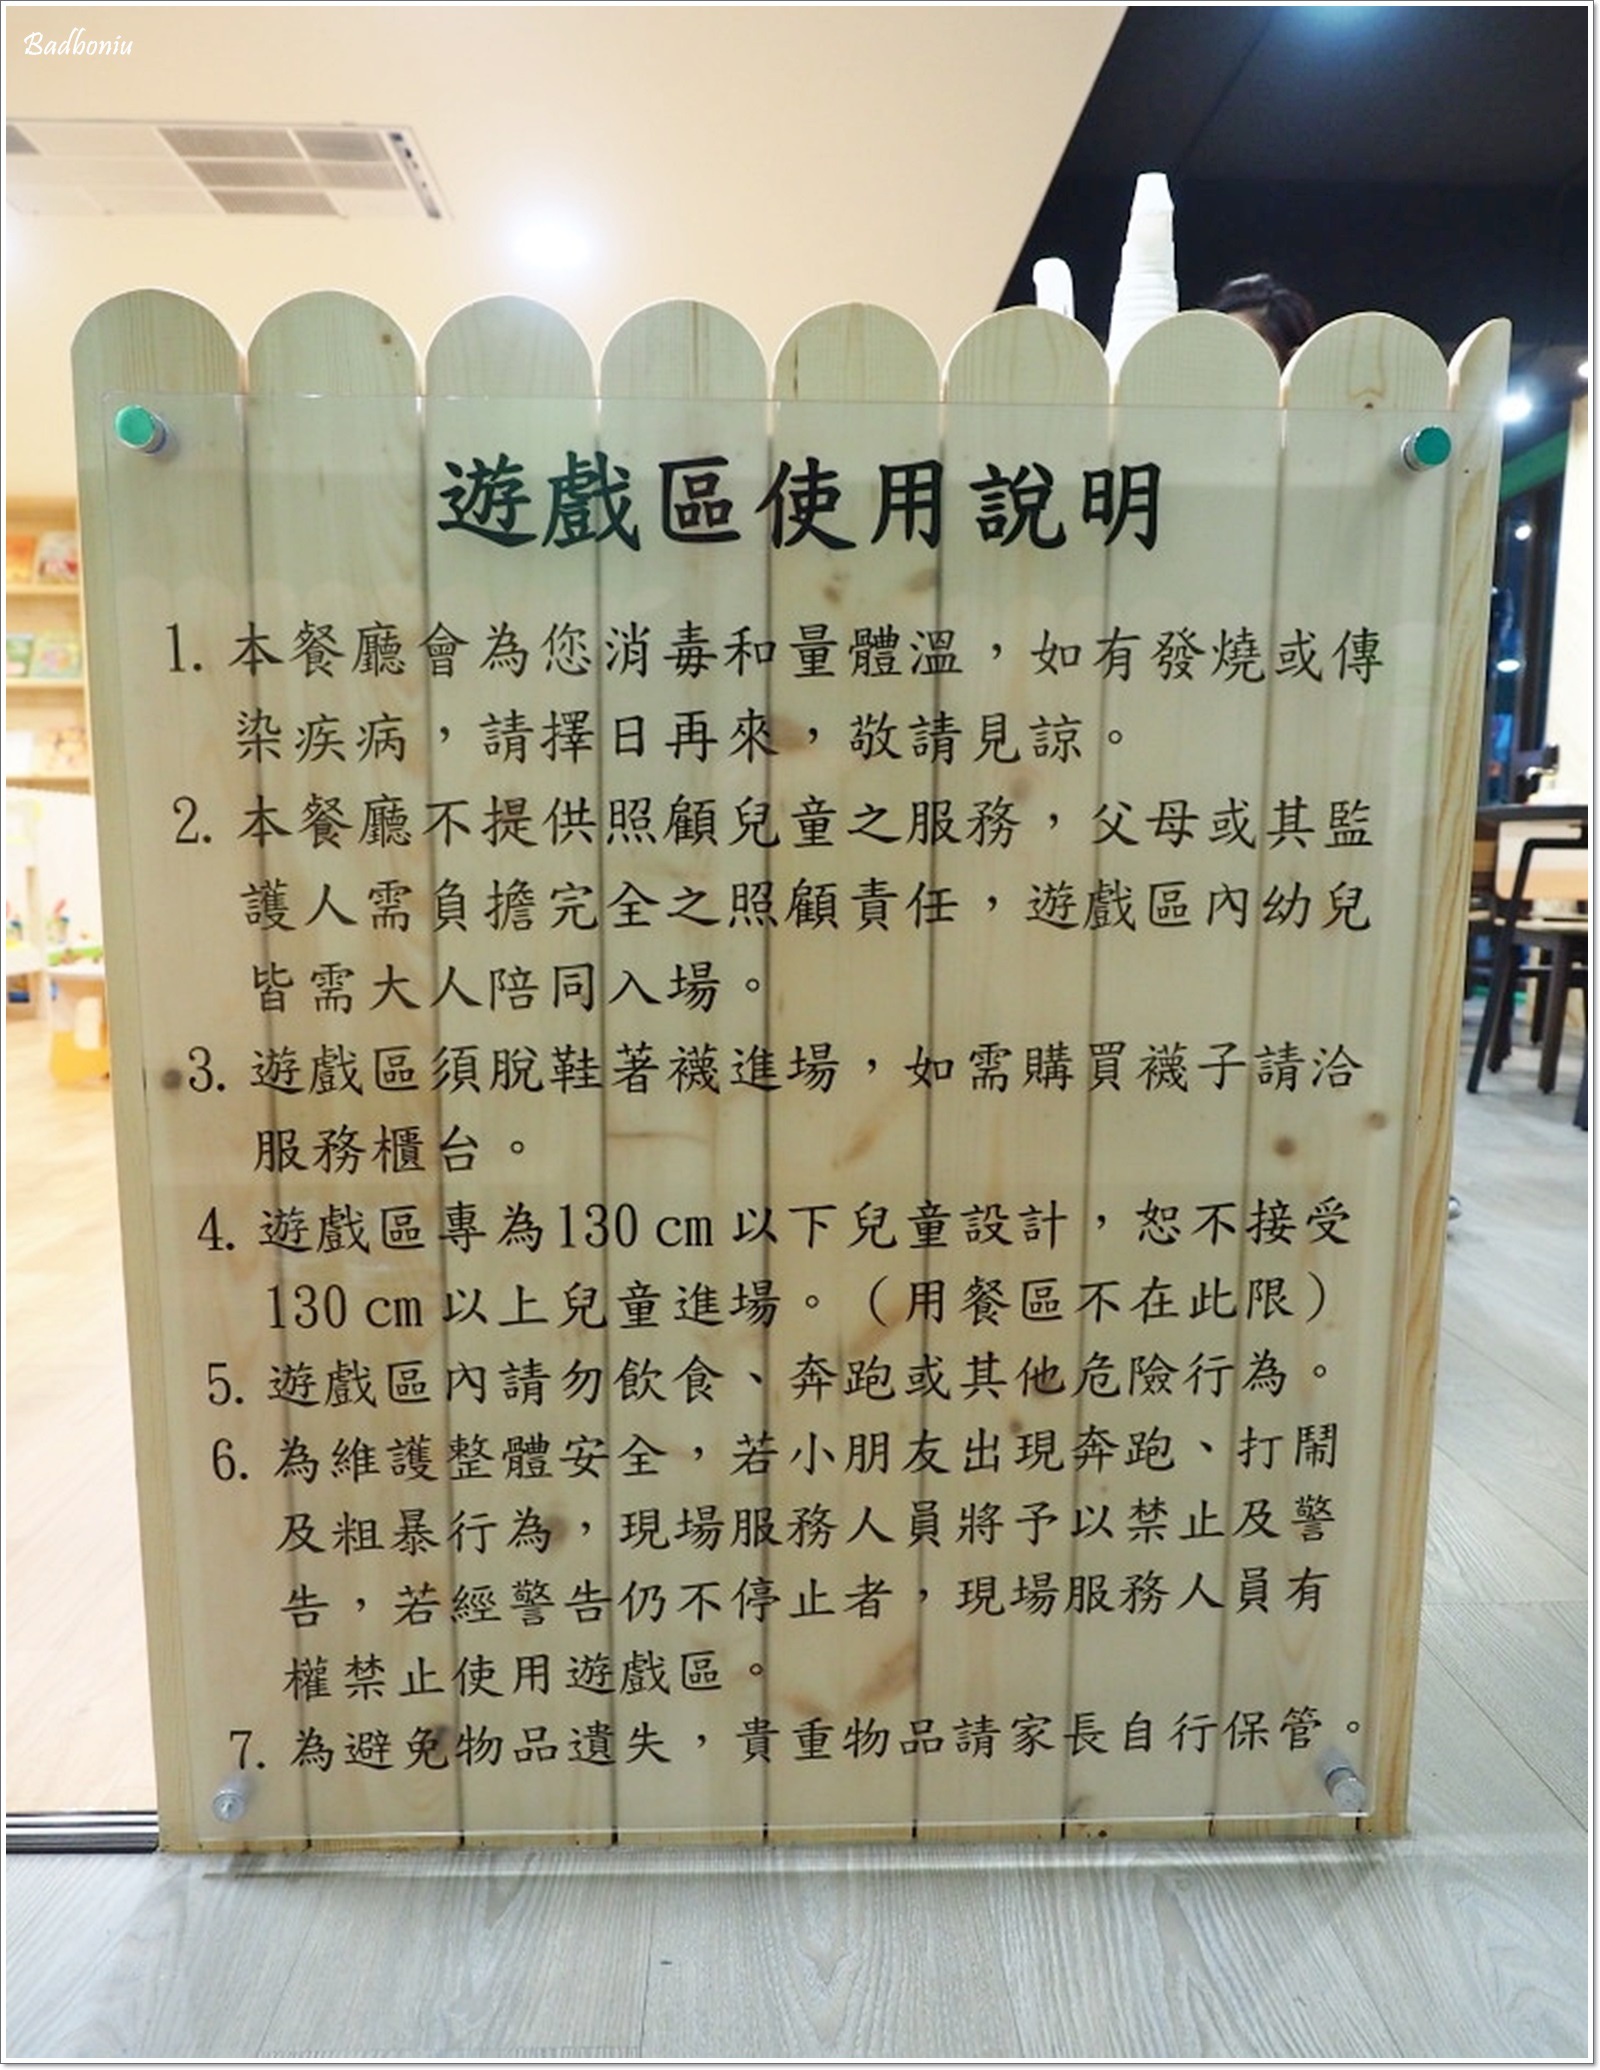 Badboniu
遊戲區使用說明
1. 本餐廳會為您消毒和量體溫，如有發燒或傳
染疾病，請擇日再來，敬請見諒。
2. 本餐廳不提供照顧兒童之服務，父母或其監
護人需負擔完全之照顧責任，遊戲區內幼兒
皆需大人陪同入場。
3. 遊戲區須脫鞋著襪進場，如需購買襪子請洽
服務櫃台。
4. 遊戲區專為130 cm 以下兒童設計，恕不接受
130 cm 以上兒童進場。（用餐區不在此限）
5. 遊戲區內請勿飲食、奔跑或其他危險行為。
6. 為維護整體安全，若小朋友出現奔跑、打鬧
及粗暴行為，現場服務人員將予以禁止及警
告，若經警告仍不停止者，現場服務人員有
權禁止使用遊戲區。
7. 為避免物品遺失，貴重物品請家長自行保管。